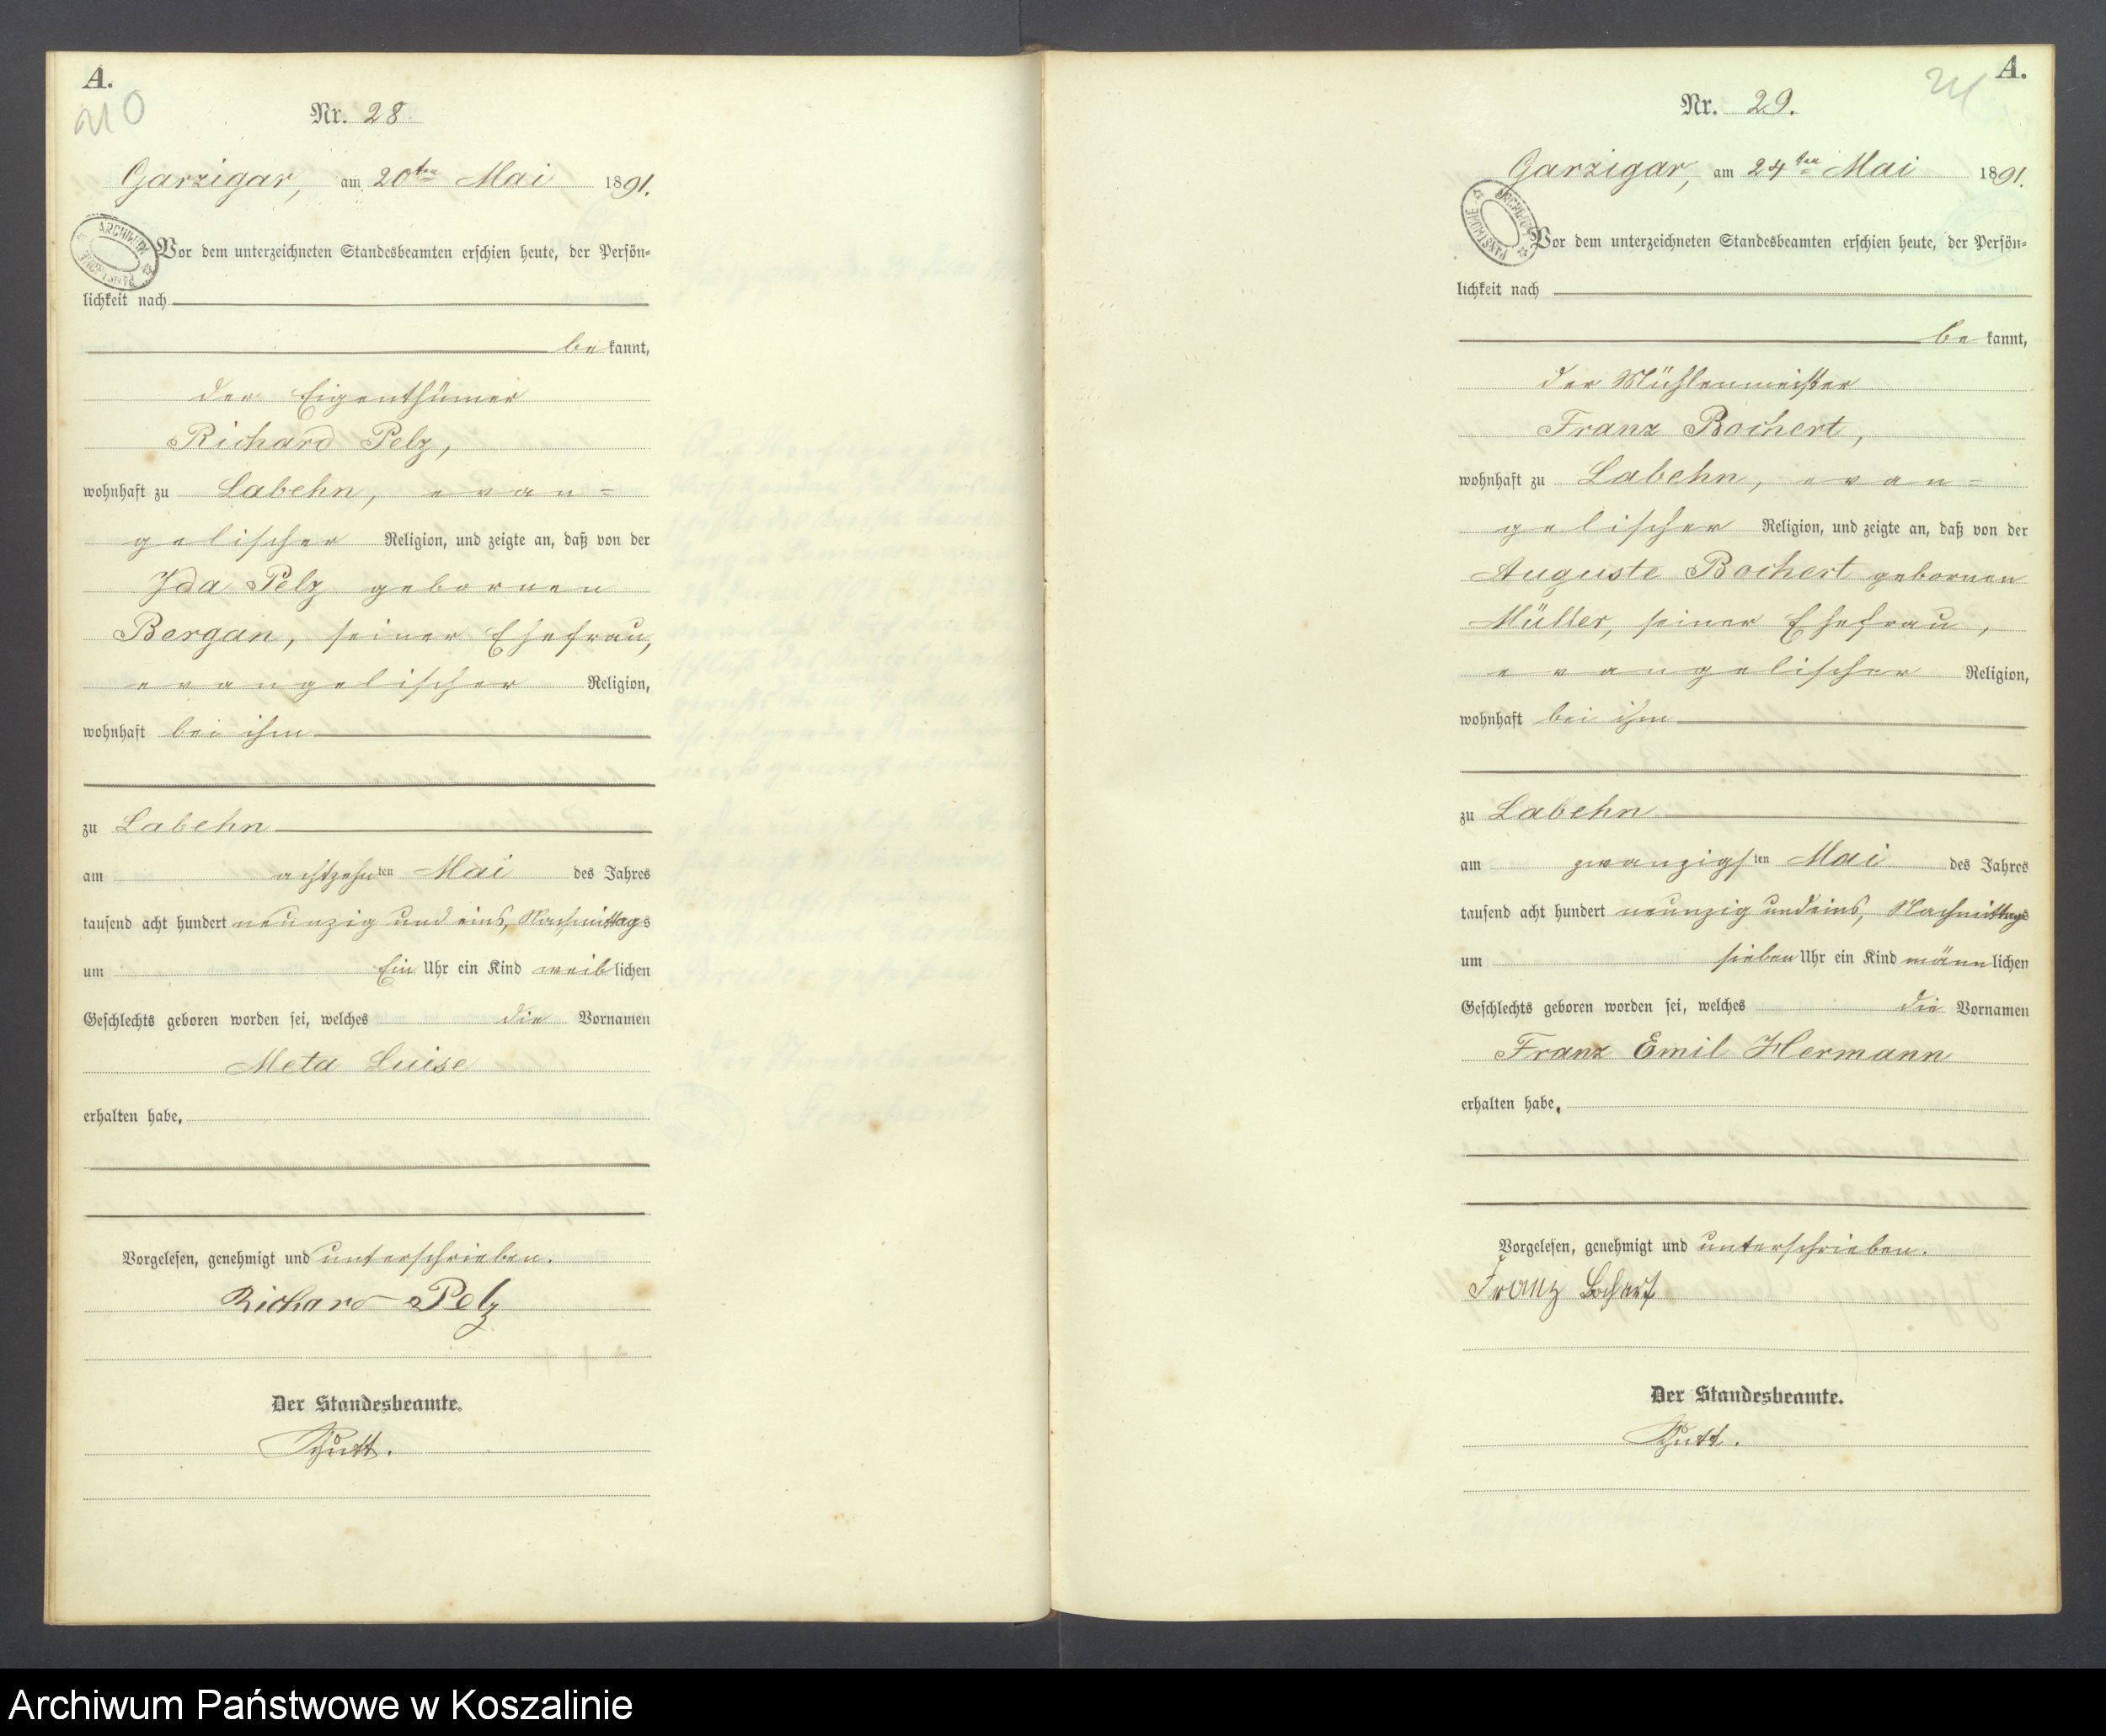 A.
210
Nr. 28
Garzigar, am 20ten Mai 1891.
ARCHIWUM PAŃSTWOWE
Vor dem unterzeichneten Standesbeamten erschien heute, der Persön-
lichkeit nach
be kannt,
der Eigenthümer
Richard Pelz,
wohnhaft zu Labehn, evan=
gelischer Religion, und zeigte an, daß von der
Ida Pelz gebornen
Bergan, seiner Ehefrau,
evangelischer Religion,
wohnhaft bei ihm
zu Labehn
am achtzehnten Mai des Jahres
tausend acht hundert neunzig und eins, Nachmittags
um Ein Uhr ein Kind weiblichen
Geschlechts geboren worden sei, welches die Vornamen
Meta Luise
erhalten habe,
Vorgelesen, genehmigt und unterschrieben.
Richard Pelz
Der Standesbeamte.
Schutt.
A.
Nr. 29.
Garzigar, am 24ten Mai 1891.
ARCHIWUM PAŃSTWOWE
Vor dem unterzeichneten Standesbeamten erschien heute, der Persön-
lichkeit nach
be kannt,
der Mühlenmeister
Franz Bochert,
wohnhaft zu Labehn, evan=
gelischer Religion, und zeigte an, daß von der
Auguste Bochert gebornen
Müller, seiner Ehefrau,
evangelischer Religion,
wohnhaft bei ihm
zu Labehn
am zwanzigsten Mai des Jahres
tausend acht hundert neunzig und eins, Nachmittags
um sieben Uhr ein Kind männlichen
Geschlechts geboren worden sei, welches die Vornamen
Franz Emil Hermann
erhalten habe.
Vorgelesen, genehmigt und unterschrieben.
Franz Bochert
Der Standesbeamte.
Schutt.
Archiwum Państwowe w Koszalinie